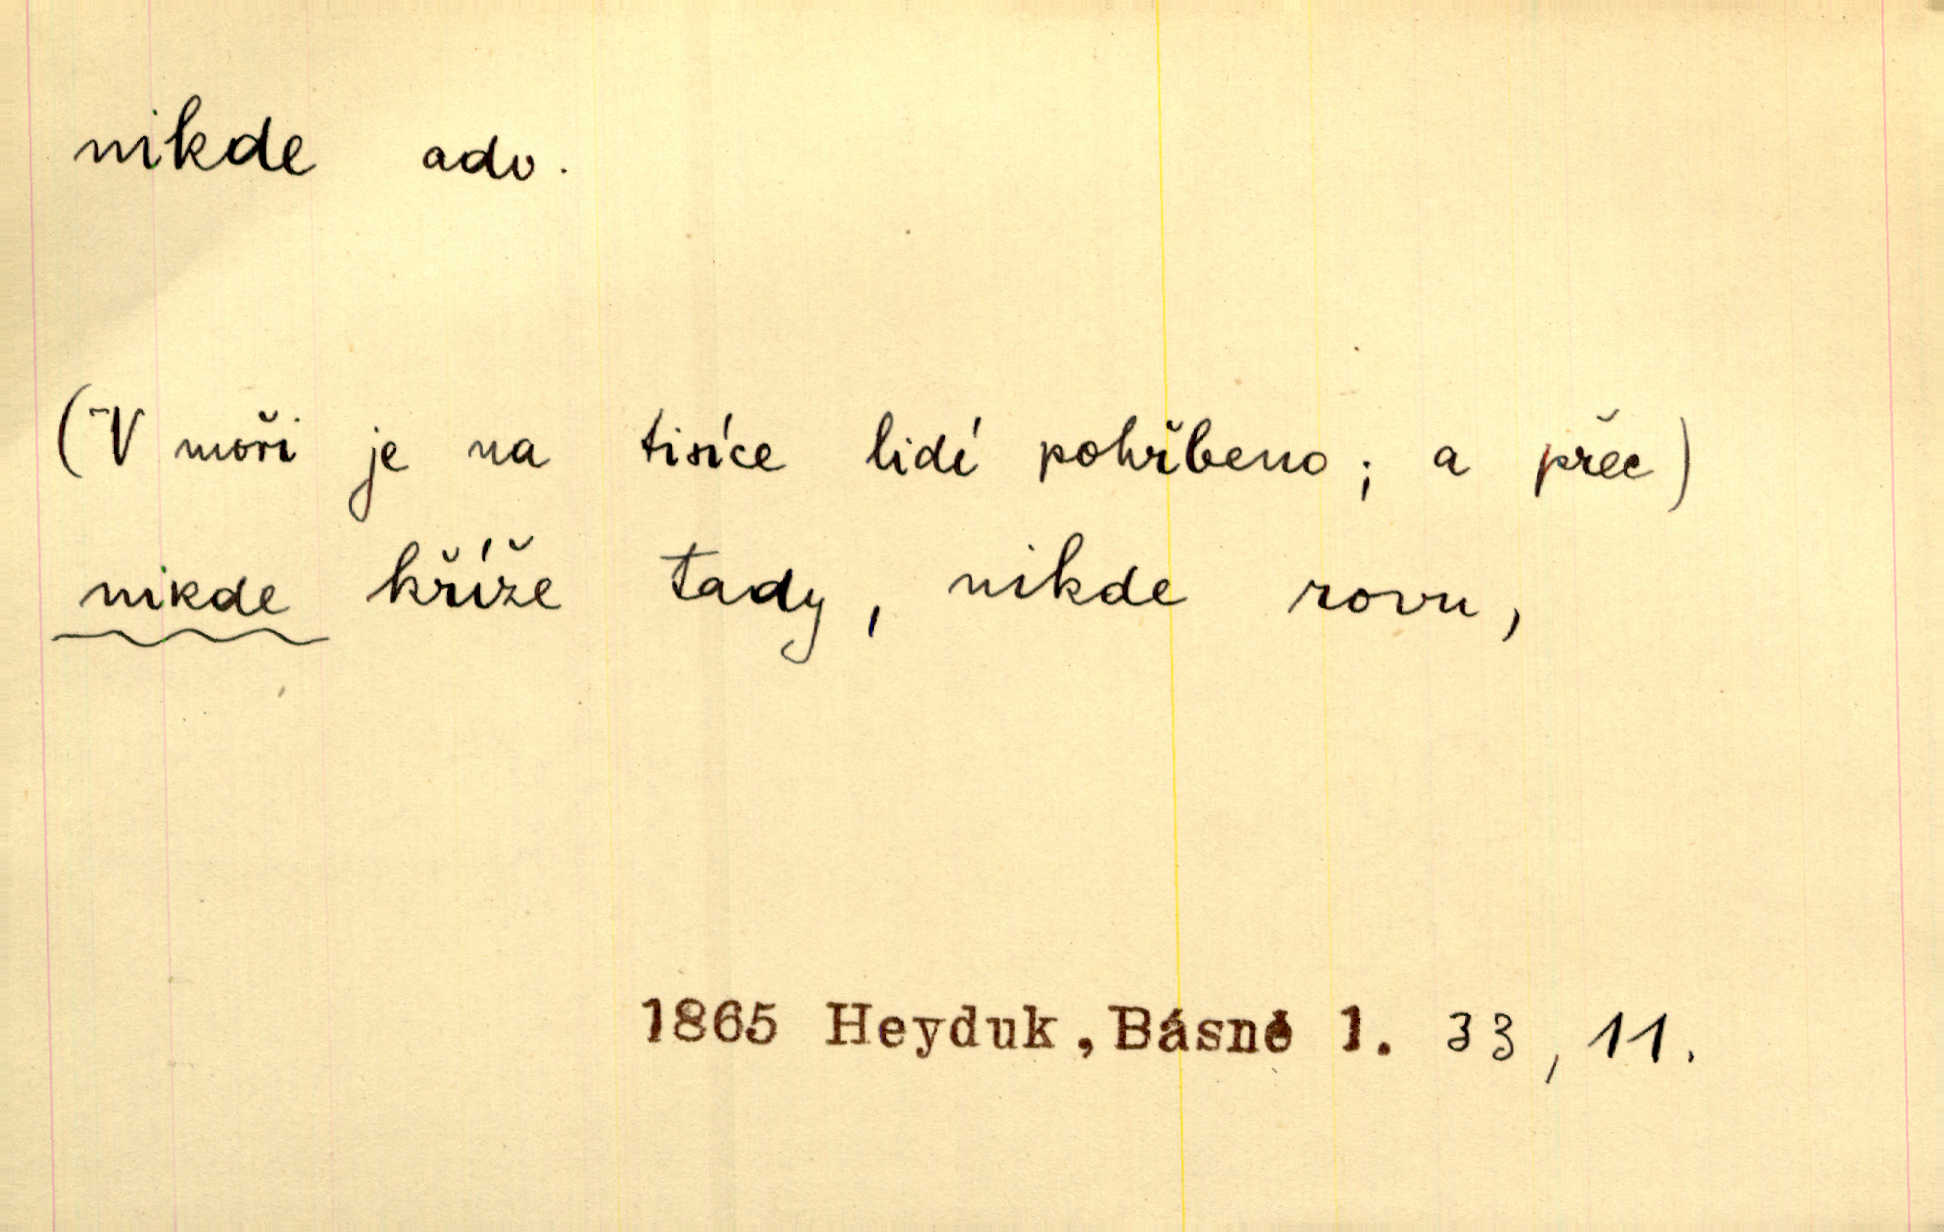 nikde adv.
(V moři je na tisíce lidí pohřbeno; a přec)
nikde kříže tady, nikde rovu,
1865 Heyduk, Básně 1. 33, 11.